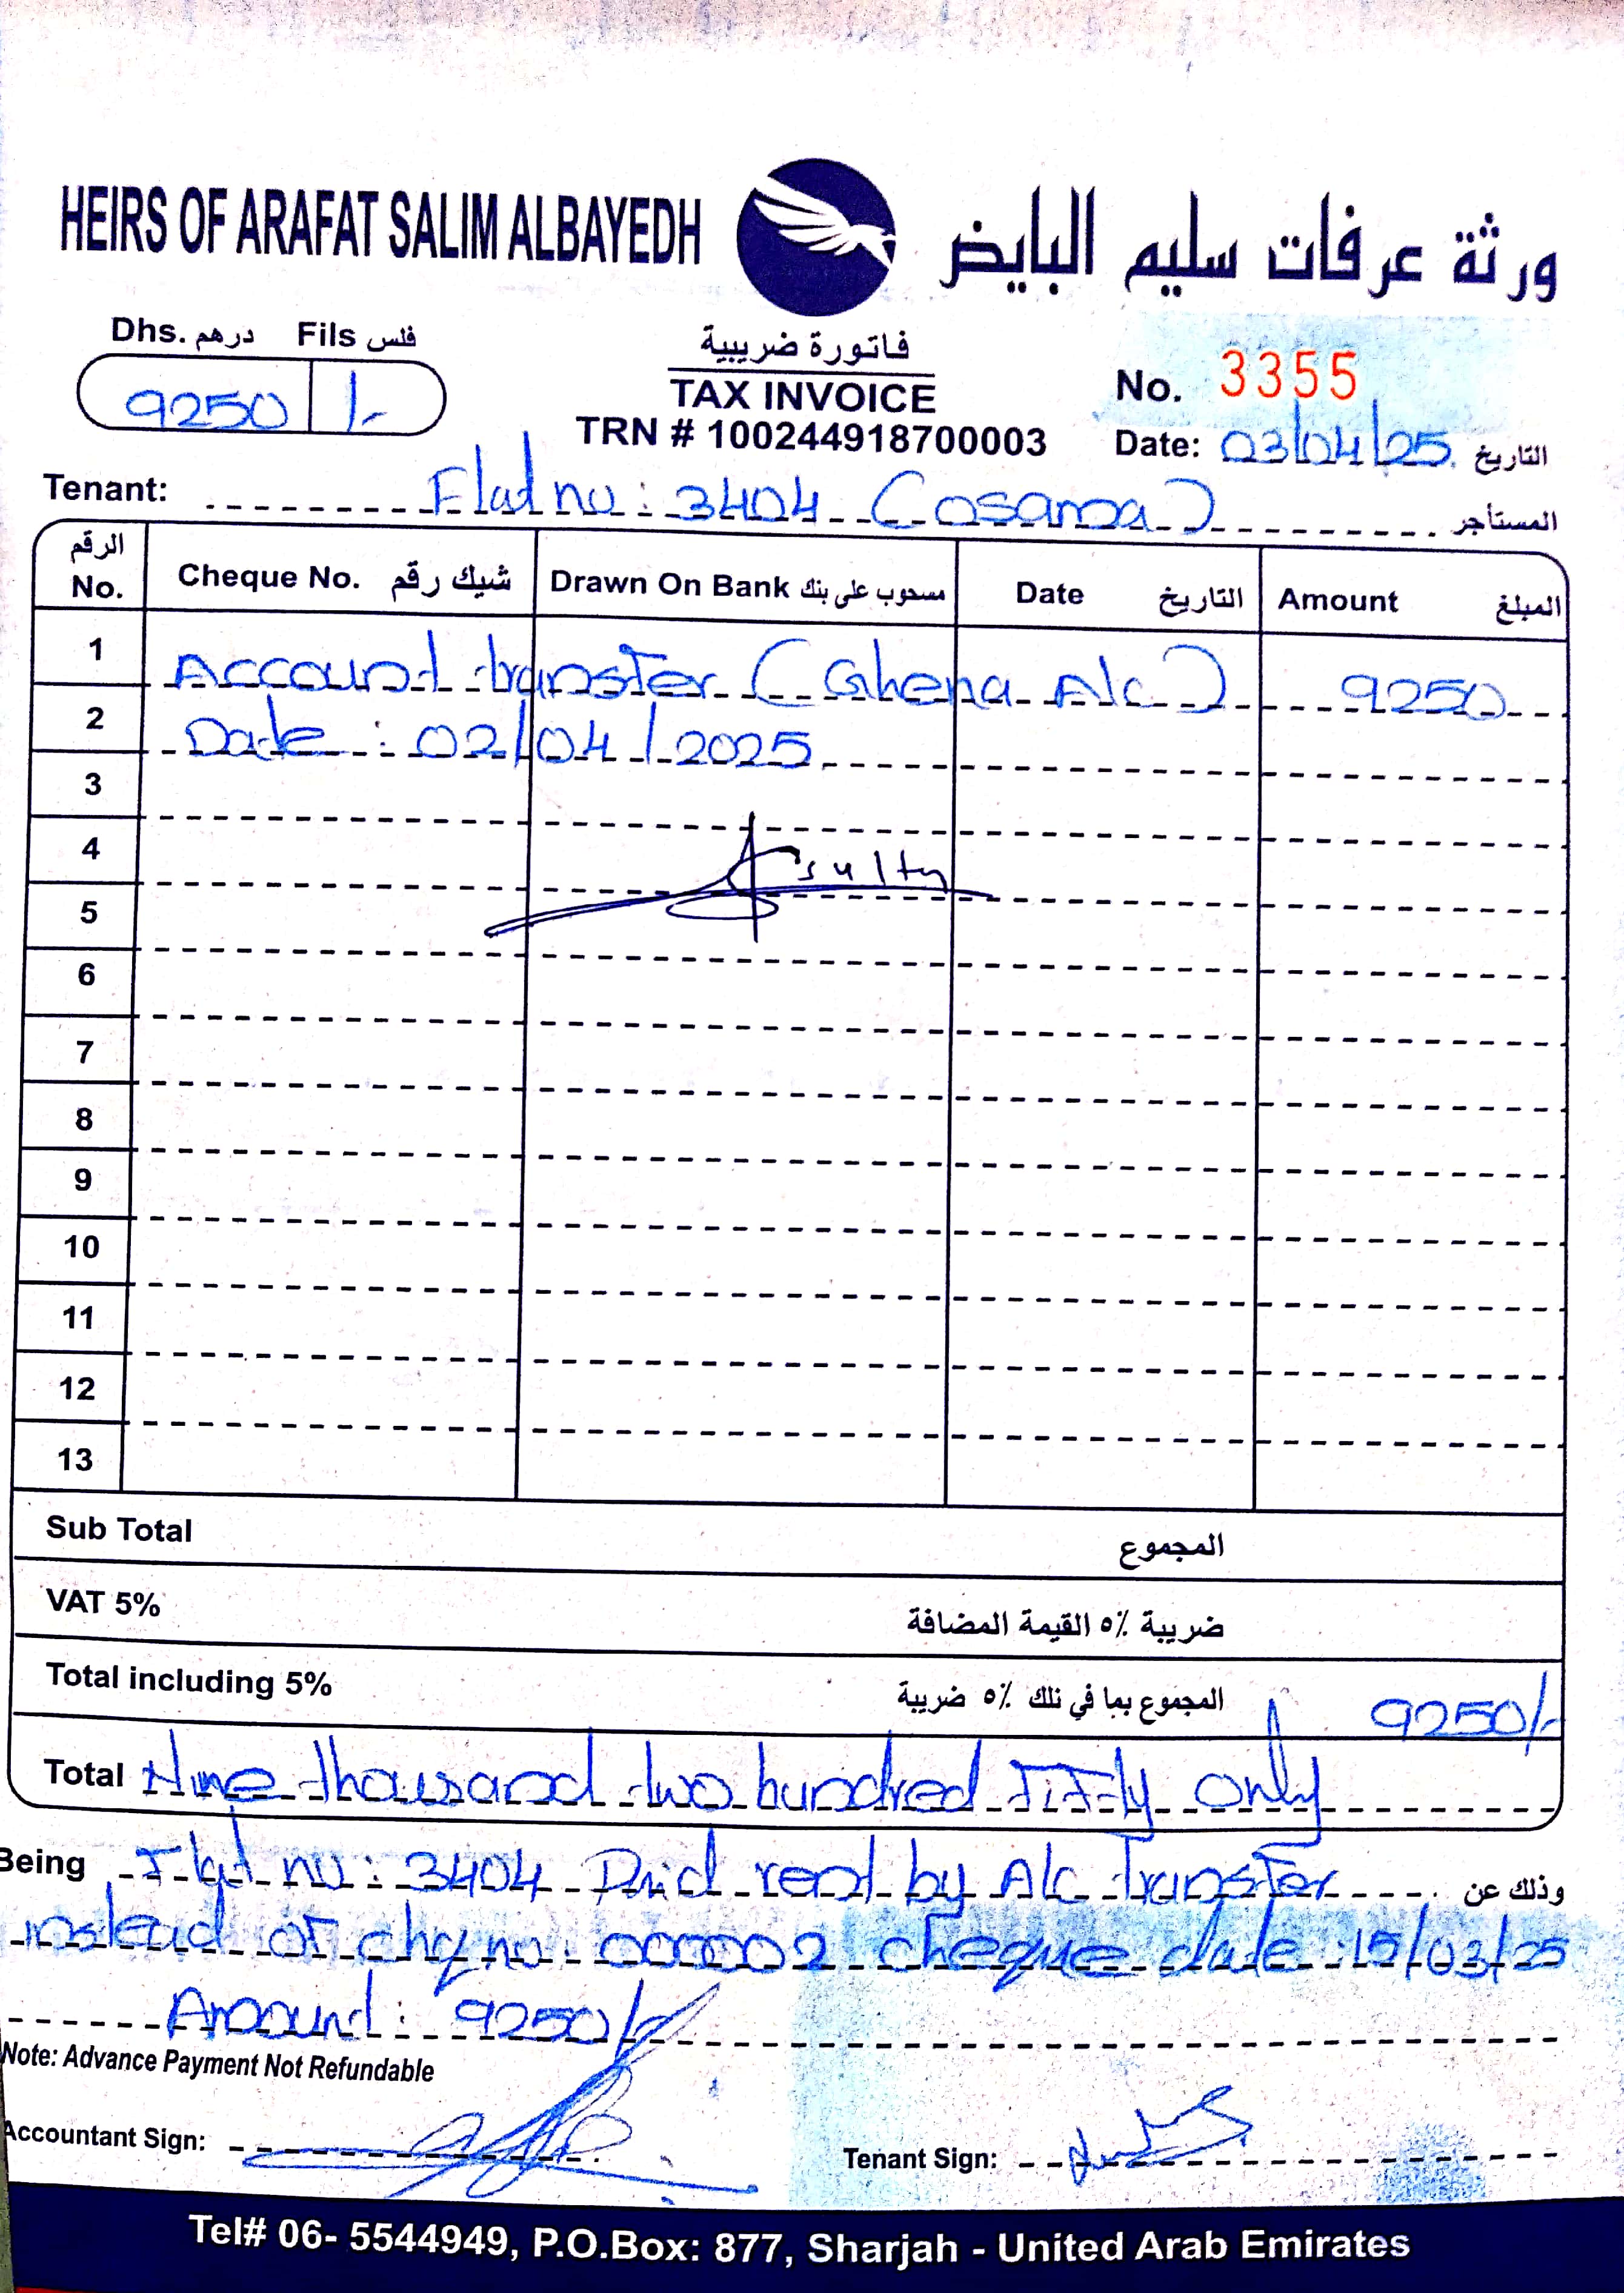 HEIRS OF ARAFAT SALIM ALBAYEDH ورثة عرفات سليم البايض
Dhs. درهم Fils فلس
9250 /-
فاتورة ضريبية
TAX INVOICE
TRN # 100244918700003
No. 3355
Date: 03/04/25 التاريخ
Tenant: Flat no: 3404 (osama) المستأجر
الرقم No. Cheque No. شيك رقم Drawn On Bank مسحوب على بنك Date التاريخ Amount المبلغ
1 Account transfer (Ghena A/c) 9250
2 Date: 02/04/2025
3
4
5
6
7
8
9
10
11
12
13
Sub Total المجموع
VAT 5% ضريبة ٥٪ القيمة المضافة
Total including 5% المجموع بما في ذلك ٥٪ ضريبة 9250/-
Total Nine thousand two hundred fifty only
Being Flat no: 3404 Paid rent by A/c transfer وذلك عن
instead of chq no: 000002 cheque date: 15/03/25
Amount: 9250/-
Note: Advance Payment Not Refundable
Accountant Sign:
Tenant Sign:
Tel# 06- 5544949, P.O.Box: 877, Sharjah - United Arab Emirates